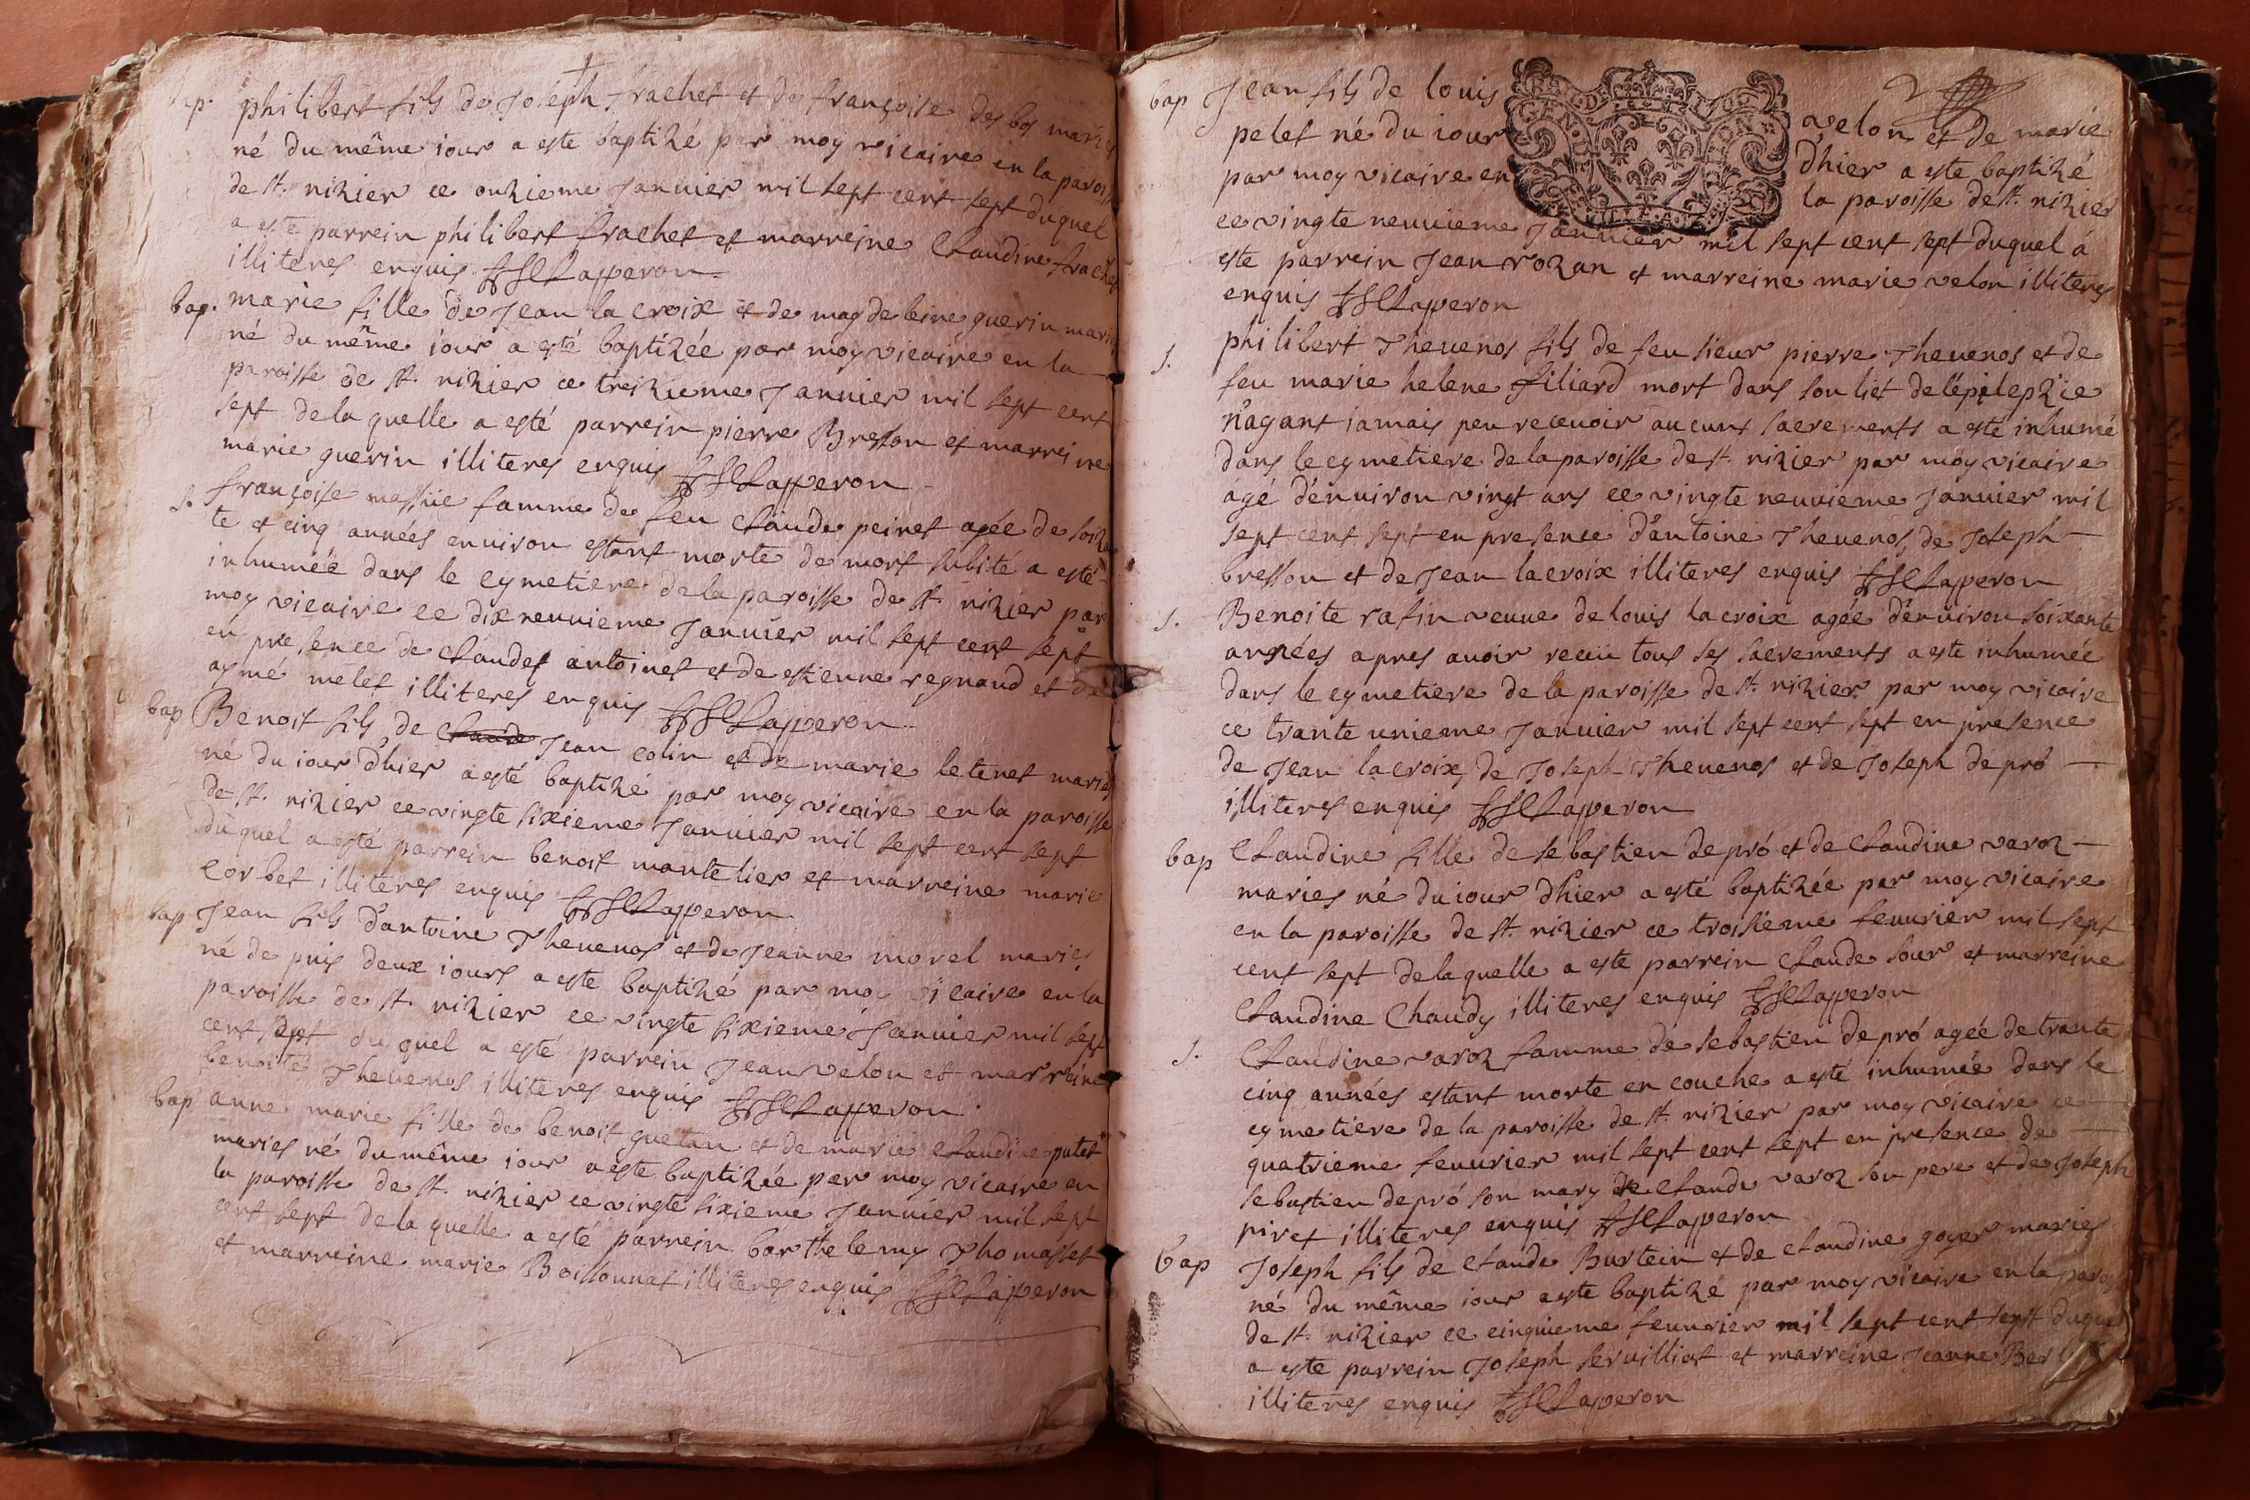 bap. philibert fils de Joseph frachet et de françoise des bos mariés
né du même iour a este baptizé par moy vicaire en la paroisse
de st. nizier ce onzieme Januier mil sept cent sept duquel
a esté parrein philibert frachet et marreine Claudine frachet
illiteres enquis Lapperon
bap. marie fille de Jean la croix et de magdeleine guerin mariés
né du même iour a esté baptizée par moy vicaire en la
paroisse de st. nizier ce treizieme Januier mil sept cent
sept de la quelle a esté parrein pierre Bresson et marreine
marie guerin illiteres enquis Lapperon
s. françoise massüe famme de feu claude peinet agée de soixan
te et cinq années enuiron estant morte de mort subité a esté
inhumée dans le cymetiere de la paroisse de st. nizier par
moy vicaire ce dixneuuieme Januier mil sept cent sept
en presence de claudes antoinet et de estienne regnaud et de
aymé melet illiteres enquis Lapperon
bap Benoit fils de claude Jean colin et de marie letenet mariés
né du iour d'hier a esté baptizé par moy vicaire en la paroisse
de st. nizier ce vingte sixieme Januier mil sept cent sept
duquel a esté parrein benoit mantelier et marreine marie
Corbet illiteres enquis Lapperon
bap Jean fils d'antoine Theuenos et de Jeanne morel mariés
né de puis deux iours a este baptizé par moy vicaire en la
paroisse de st. nizier ce vingte sixieme Januier mil sept
cent sept du quel a esté parrein Jean velon et marreine
benoite Theuenos illiteres enquis Lapperon
bap anne marie fille de benoit guetan et de marie claudine putet
mariés né du même iour a este baptizée par moy vicaire en
la paroisse de st. nizier ce vingte sixieme Januier mil sept
cent sept de la quelle a esté parrein barthelemy Thomasset
et marreine marie Boissonnat illiteres enquis Lapperon
bap Jean fils de louis velon et de marie
pelet né du iour d'hier a este baptizé
par moy vicaire en la paroisse de st. nizier
ce vingte neuuieme Januier mil sept cent sept duquel á
este parrein Jean rozan et marreine marie velon illiteres
enquis Lapperon
s. philibert Theuenos fils de feu sieur pierre Theuenos et de
feu marie helene filiard mort dans son liet de l'épilepzie
n'ayant iamais peu receuoir aucuns sacrements a este inhumé
dans le cymetiere de la paroisse de st. nizier par moy vicaire
agé d'enuiron vingt ans ce vingte neuuieme Januier mil
sept cent sept en presence d'antoine Theuenos, de Joseph
bresson et de Jean lacroix illiteres enquis Lapperon
s. Benoite rafin veuue de louis lacroix agée d'enuiron soixante
années apres auoir reçeu tous ses sacrements a este inhumée
dans le cymetiere de la paroisse de st. nizier par moy vicaire
ce trante unieme Januier mil sept cent sept en presence
de Jean lacroix, de Joseph Theuenos et de Joseph depró
illiteres enquis Lapperon
bap Claudine fille de sebastien depró et de claudine varoz
mariés né du iour d'hier a esté baptizée par moy vicaire
en la paroisse de st. nizier ce troisieme feuurier mil sept
cent sept de la quelle a este parrein claude sour et marreine
Claudine Chaudy illiteres enquis Lapperon
s. Claudine varoz famme de sebastien depró agée de trante
cinq années estant morte en couche a esté inhumée dans le
cymetiere de la paroisse de st. nizier par moy vicaire ce
quatrieme feuurier mil sept cent sept en presence de
sebastien depró son mary de claude varoz son pere et de Joseph
piret illiteres enquis Lapperon
bap Joseph fils de claude Burtein et de claudine goyer mariés
né du même iour a este baptizé par moy vicaire en la paroisse
de st. nizier ce cinquieme feuurier mil sept cent sept duquel
a este parrein Joseph seruilliat et marreine Jeanne
illiteres enquis Lapperon